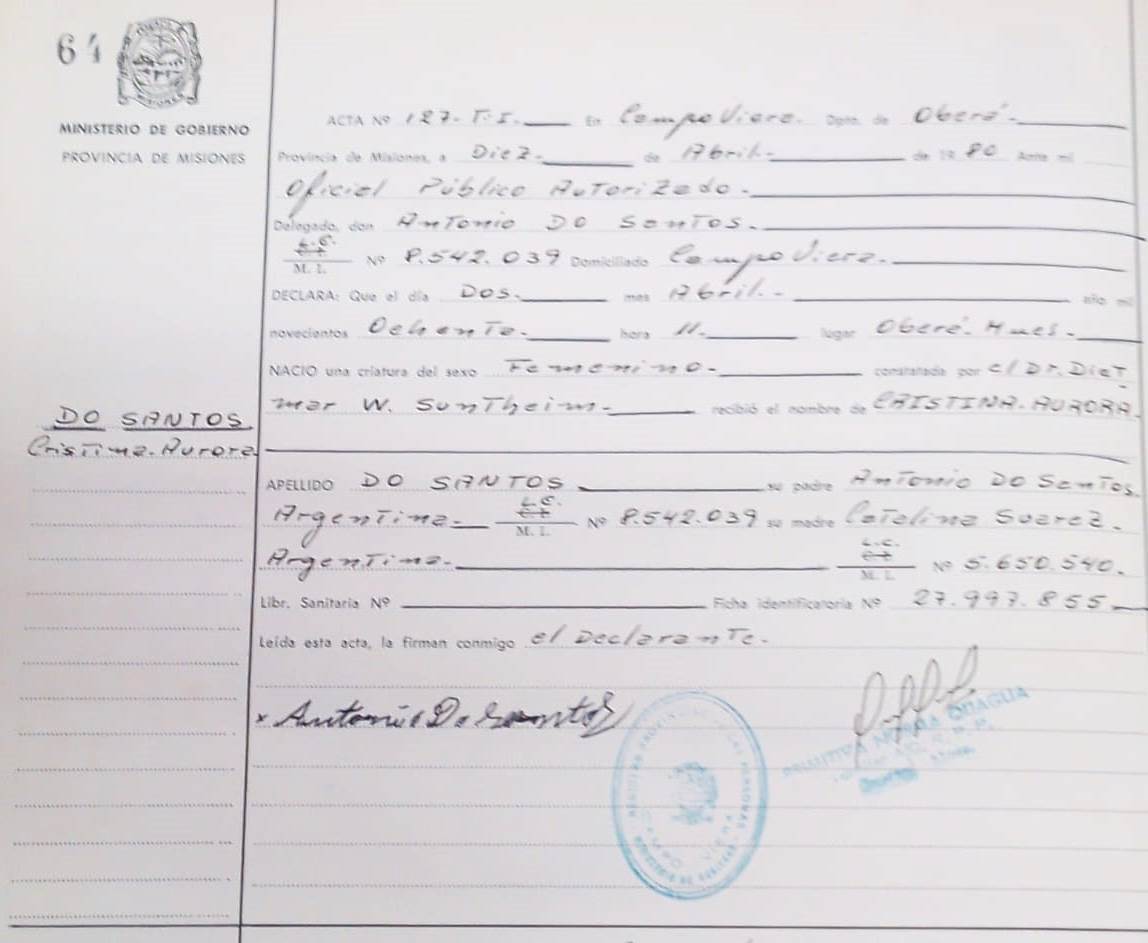 64
MISIONES
MINISTERIO DE GOBIERNO
PROVINCIA DE MISIONES
DO SANTOS
Cristina. Aurora
ACTA Nº 127. T. I. En Campo Viera. Dpto. de Oberá.
Provincia de Misiones, a Diez. de Abril. de 19 80 Ante mi
Oficial Público Autorizado.
Delegado, don Antonio DO Santos.
L.C.
M. I. Nº 8.542.039 Domiciliado Campo Viera.
DECLARA: Que el día Dos. mes Abril. año mil
novecientos Ochenta. hora 11. lugar Oberá. Mnes.
NACIO una criatura del sexo Femenino. constatada por el Dr. Diet
mar W. Suntheim. recibió el nombre de CRISTINA. AURORA.
APELLIDO DO SANTOS su padre Antonio DO Santos.
Argentina. L.C. M. I. Nº 8.542.039 su madre Catalina Suarez.
Argentina. L.C. M. I. Nº 5.650.540.
Libr. Sanitaria Nº Ficha identificatoria Nº 27.997.855
Leída esta acta, la firman conmigo el Declarante.
x Antonio Do Santos
CAMPO VIERA